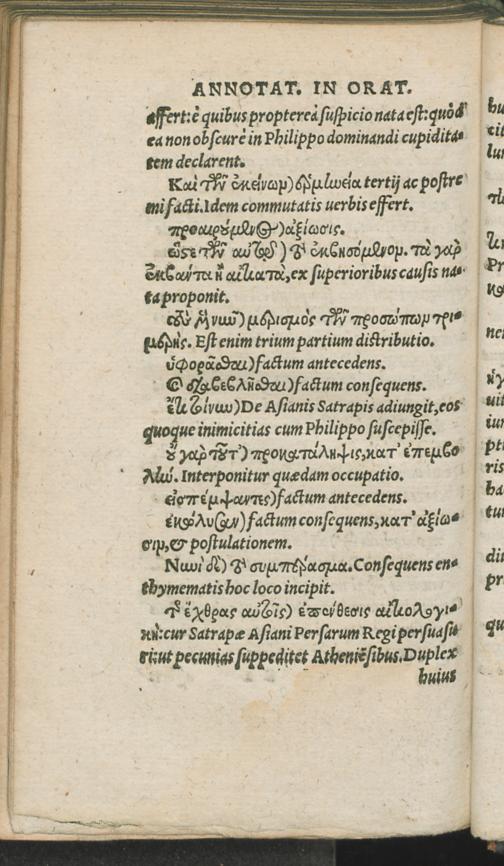 ANNOTAT. IN ORAT.
affert: è quibus propterea suspicio nata est: quòd
ea non obscurè in Philippo dominandi cupidita-
tem declarent.
Καὶ τῶν ἐκείνων) ἑρμηνεία tertij ac postre
mi facti. Idem commutatis uerbis effert.
προαιρούμενος) ἀξίωσις.
ὥστε τῶν αὐτοῦ) τὸ ἐκβησόμενον. τὰ γὰρ
ἐκβάντα ἢ αἰκατὰ, ex superioribus causis na-
ta proponit.
μερισμὸς τῶν προσώπων τρι-
μερής. Est enim trium partium distributio.
ὑφορᾶσθαι) factum antecedens.
διαβεβλῆσθαι) factum consequens.
De Asianis Satrapis adiungit, eos
quoque inimicitias cum Philippo suscepisse.
γὰρ τοῦτ') προκατάληψις, κατ' ἐπεμβο
λὴν. Interponitur quædam occupatio.
εἰσπέμψαντες) factum antecedens.
ἐκώλυσαν) factum consequens, κατ' ἀξίω-
σιν, & postulationem.
Νυνὶ δὲ) τὸ συμπέρασμα. Consequens en-
thymematis hoc loco incipit.
τῆς ἔχθρας αὐτοῖς) ἐπένθεσις αἰτιολογι-
κὴ: cur Satrapæ Asiani Persarum Regi persuasu
ri: ut pecunias suppeditet Atheniẽsibus. Duplex
huius